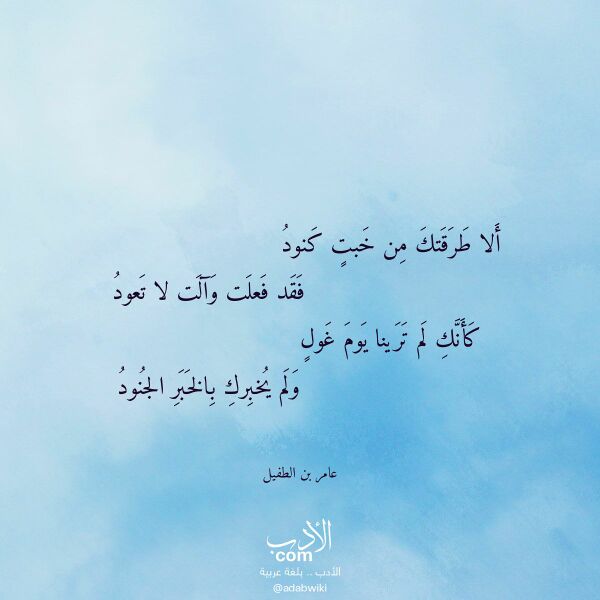 أَلا طَرَقَتكَ مِن خَبتٍ كَنودُ
فَقَد فَعلَت وَآلَت لا تَعودُ
كَأَنَّكِ لَم تَرَينا يَومَ غَولٍ
وَلَم يُخبِركِ بِالخَبَرِ الجُنودُ
عامر بن الطفيل
الأدب
com
الأدب .. بلغة عربية
@adabwiki